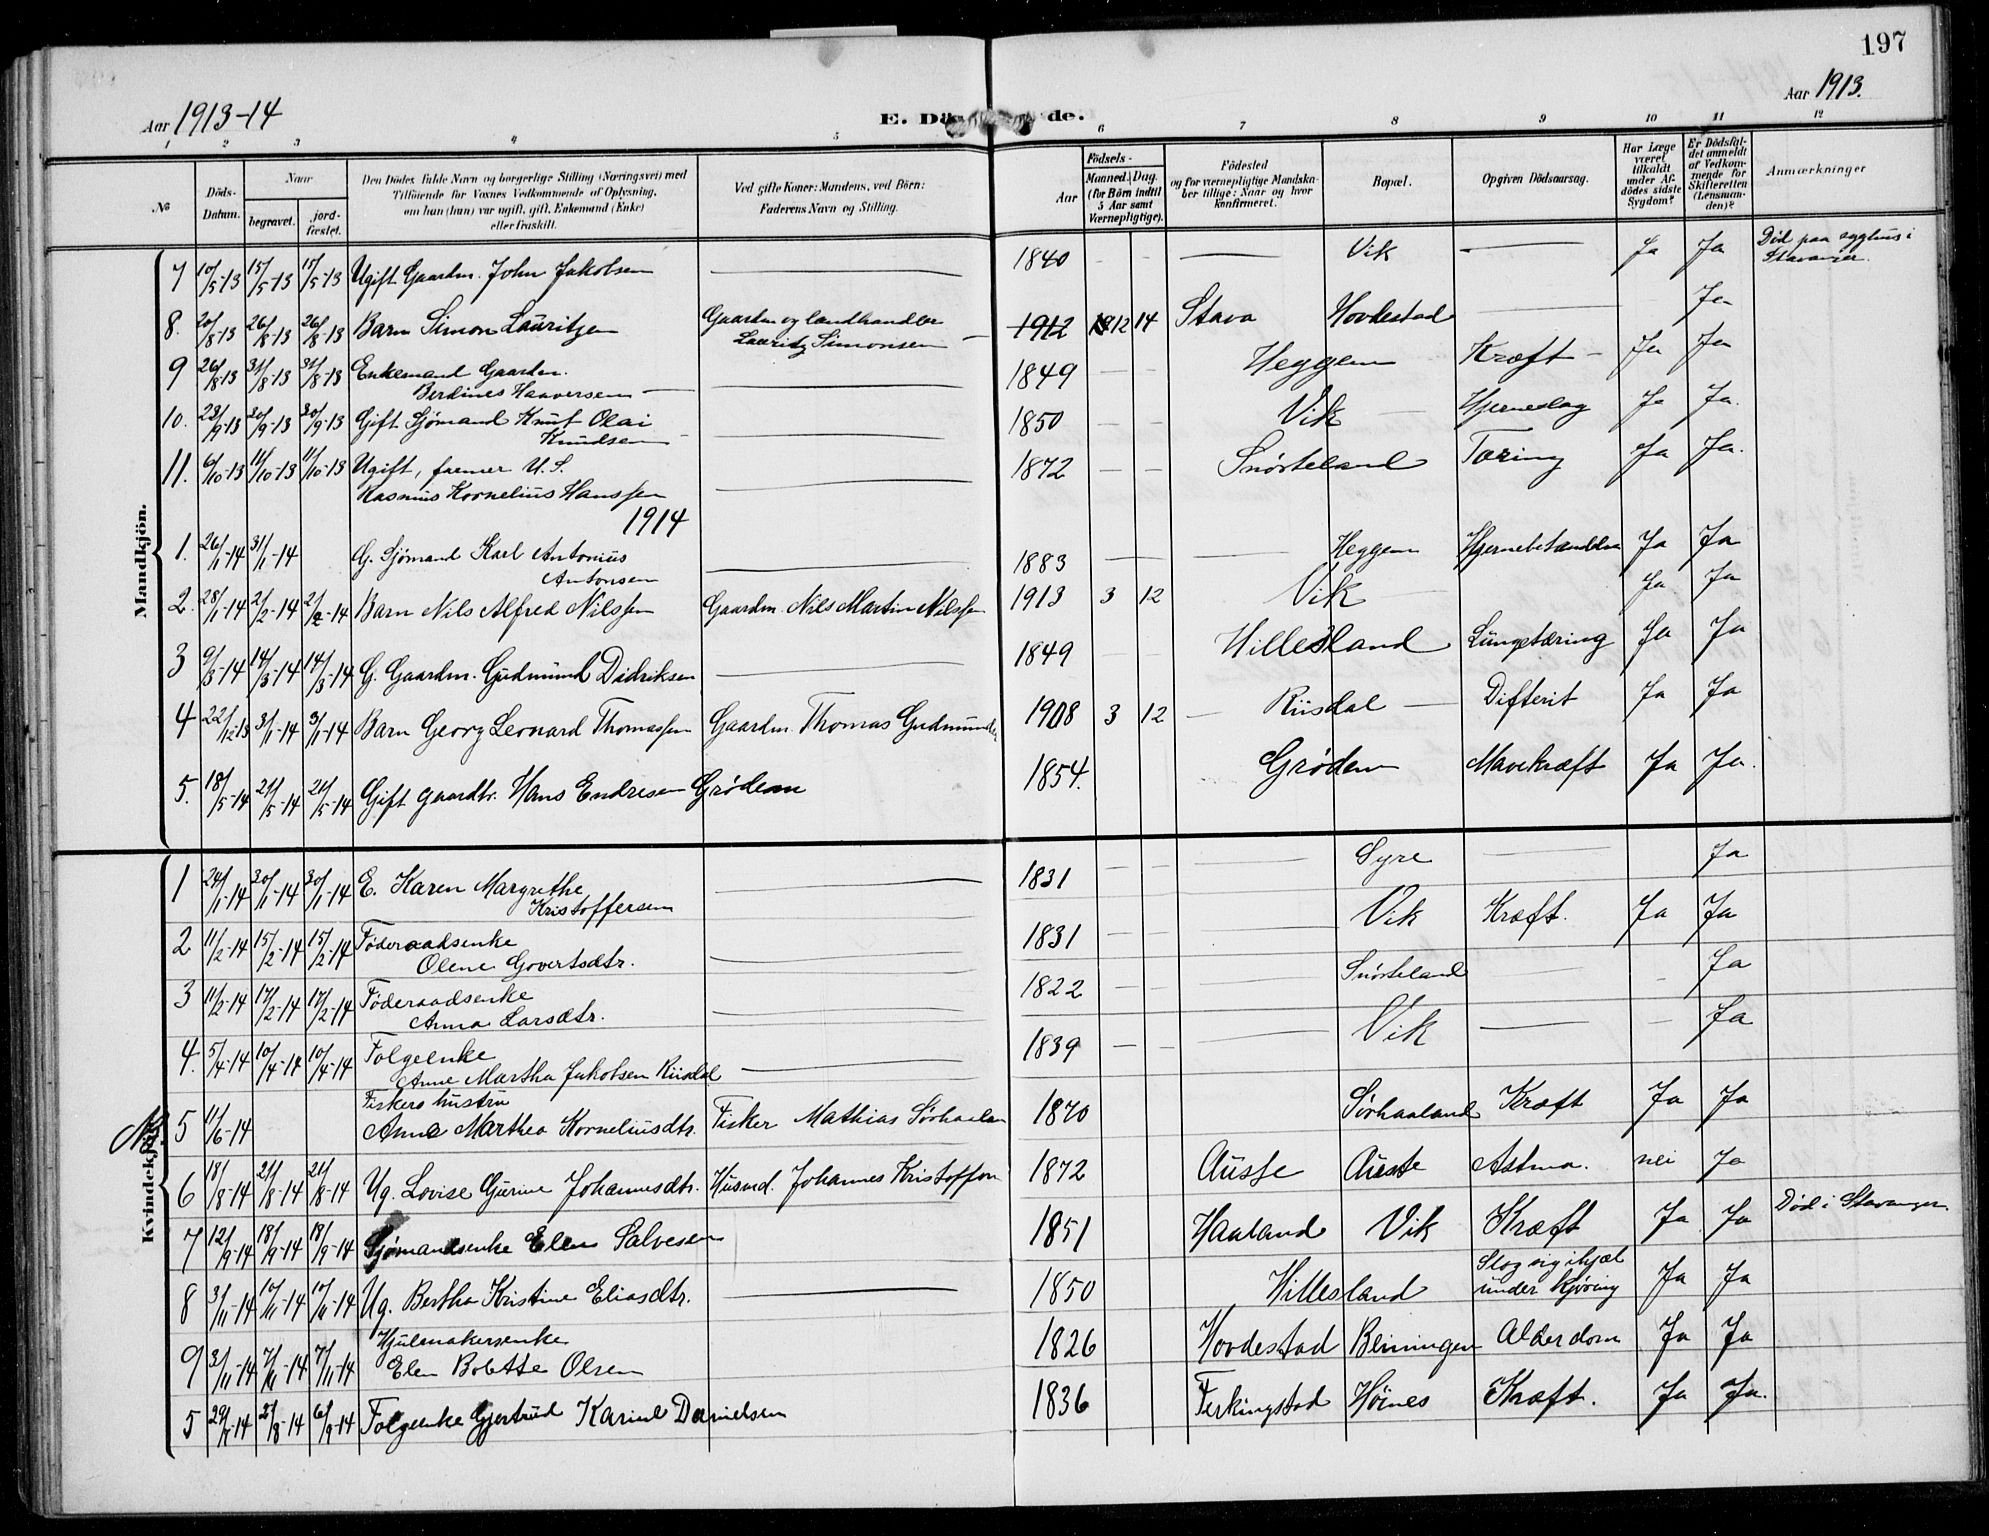 197
Aar 1913-14
E. Dö de.
Aar 1913.
1 2 3 4 5 6 7 8 9 10 11 12
№
Döds-Datum.
Naar
begravet.
jord-fæstet.
Den Dödes fulde Navn og borgerlige Stilling (Næringsvei) med
Tilföiende for Voxnes Vedkommende af Oplysning,
om han (hun) var ugift, gift, Enkemand (Enke)
eller fraskilt.
Ved gifte Koner: Mandens, ved Börn:
Faderens Navn og Stilling.
Aar
Födsels-
Maaned. Dag.
(for Börn indtil
5 Aar samt
Værnepligtige).
Födested
og for værnepligtige Mandska-
ber tillige: Naar og hvor
konfirmeret.
Bopæl.
Opgiven Dödsaarsag.
Har Læge
været
tilkaldt
under Af-
dödes sidste
Sygdom?
Er Dödsfal-
det anmeldt
af Vedkom-
mende for
Skifteretten
(Lensman-
den)?
Anmærkninger
Mandkjön.
7 10/5-13 15/5-13 15/5-13 Ugift Gaardm. John Jakobsen 1840 Vik Ja Ja Död paa syghus i
Stavanger.
8. 20/8-13 26/8-13 26/8-13 Barn Simon Lauritzen Gaardm og landhandler
Lauritz Simonsen 1912 12 14 Stava Hovdestad Ja
9 26/8-13 31/8-13 31/8-13 Enkemand Gaardm.
Berdines Haaversen 1849 Heggem Kræft Ja Ja
10. 23/9-13 30/9-13 30/9-13 Gift Sjømand Knut Olai
Knudsen 1850 Vik Hjerneslag Ja Ja.
11. 6/10-13 11/10-13 11/10-13 Ugift, farmer U.S.
Rasmus Kornelius Hanssen 1872 Snörteland Tæring Ja Ja.
1914
1. 26/1-14 31/1-14 G. Sjømand Karl Antonius
Antonsen 1883 Heggem Hjernebetændelse Ja Ja
2. 28/1-14 2/2-14 2/2-14 Barn Nils Alfred Nilssen Gaardm. Nils Martin Nilssen 1913 3 12 Vik Ja Ja
3 9/3-14 14/3-14 14/3-14 G. Gaardm. Gudmund Didriksen 1849 Hillesland Lungetæring Ja Ja
4 22/12-13 3/1-14 3/1-14 Barn Georg Leonard Thomassen Gaardm. Thomas Gudmundsen 1908 3 12 Riisdal Difterit Ja Ja
5. 18/5-14 21/5-14 21/5-14 Gift gaardbr. Hans Endresen Grödem 1854. Grödem Mavekræft Ja Ja.
Kvindekjön.
1 24/1-14 30/1-14 30/1-14 E. Karen Margrethe
Kristoffersen 1831 Syre Ja
2 11/2-14 15/2-14 15/2-14 Föderaadsenke
Olene Govertsdtr. 1831 Vik Kræft. Ja Ja
3 11/2-14 17/2-14 17/2-14 Föderaadsenke
Anna Larsdtr. 1822 Snörteland Ja
4. 5/4-14 10/4-14 10/4-14 Folgeenke
Anne Martha Jakobsen Riisdal 1839 Vik Ja
5 11/6-14 Fiskers hustru
Anna Marthea Korneliusdtr. Fisker Mathias Sörhaaland 1870 Sörhaaland Kræft Ja Ja
6 18/8-14 21/8-14 21/8-14 Ug. Lovise Gurine Johannesdtr. Husmd. Johannes Kristoffersen 1872 Ausse Ausse Astma. nei Ja
7 12/9-14 18/9-14 18/9-14 Sjömandsenke Elen Salvesen 1851 Haaland Vik Kræft Ja Ja Död i Stavanger
8 3/11-14 10/11-14 10/11-14 Ug. Bertha Kristine Eliasdtr. 1850 Hillesland Slog sig ihjæl
under kjöring Ja Ja
9 3/11-14 7/11-14 7/11-14 Hjulmakersenke
Elen Bolette Olsen 1826 Hovdestad Beiningen Alderdom Ja Ja
5 29/7-14 2/8-14 6/9-14 Folgeenke Gjertrud Karine Danielsen 1836 Ferkingstad Höines Kræft. Ja Ja.